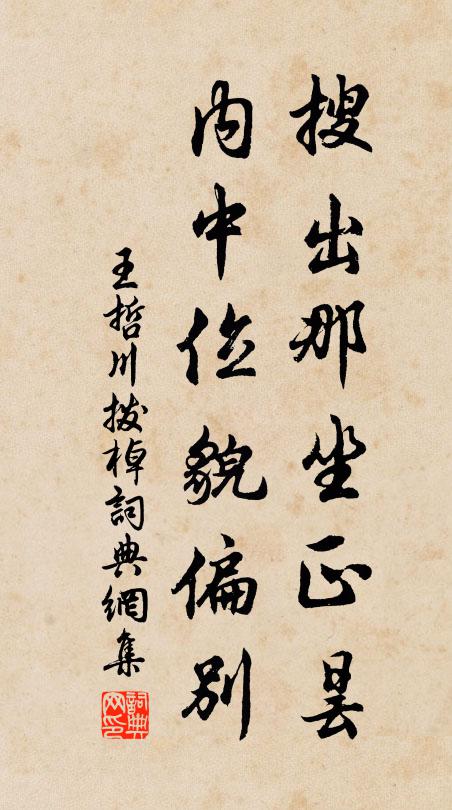 搜出那坐正昙
内中位貌偏别
王哲川拨棹詞典網集
詞典
网印